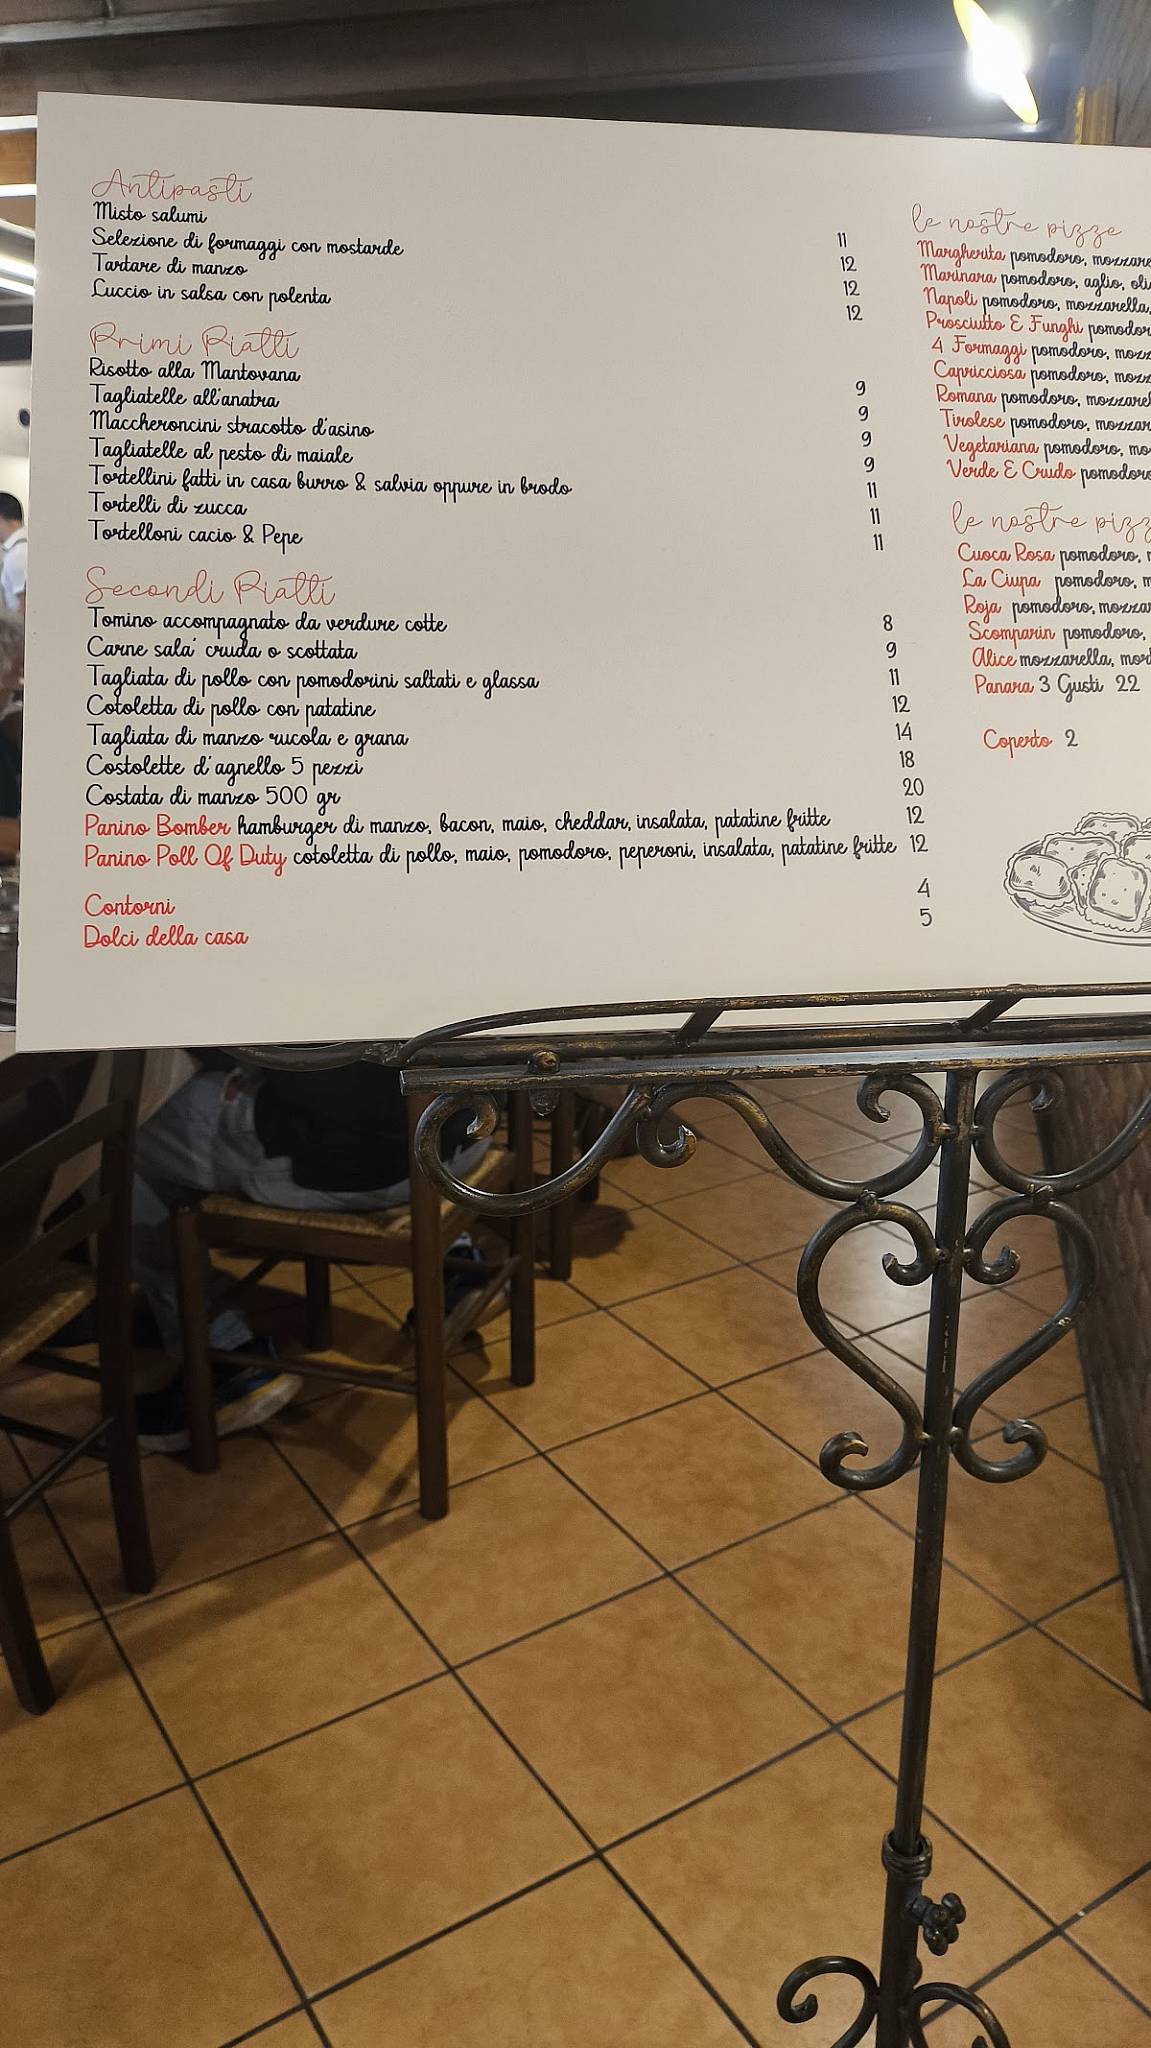 Antipasti
Misto salumi 11
Selezione di formaggi con mostarde 12
Tartare di manzo 12
Luccio in salsa con polenta 12
Primi Piatti
Risotto alla Mantovana 9
Tagliatelle all'anatra 9
Maccheroncini stracotto d'asino 9
Tagliatelle al pesto di maiale 9
Tortellini fatti in casa burro & salvia oppure in brodo 11
Tortelli di zucca 11
Tortelloni cacio & Pepe 11
Secondi Piatti
Tomino accompagnato da verdure cotte 8
Carne sala' cruda o scottata 9
Tagliata di pollo con pomodorini saltati e glassa 11
Cotoletta di pollo con patatine 12
Tagliata di manzo rucola e grana 14
Costolette d'agnello 5 pezzi 18
Costata di manzo 500 gr 20
Panino Bomber hamburger di manzo, bacon, maio, cheddar, insalata, patatine fritte 12
Panino Poll Of Duty cotoletta di pollo, maio, pomodoro, peperoni, insalata, patatine fritte 12
Contorni 4
Dolci della casa 5
le nostre pizze
Margherita pomodoro,
Marinara pomodoro, aglio,
Napoli pomodoro, mozzarella,
Prosciutto & Funghi
4 Formaggi pomodoro,
Capricciosa pomodoro,
Romana pomodoro,
Tirolese pomodoro,
Vegetariana pomodoro,
Verde & Crudo pomodoro
le nostre
Cuoca Rosa pomodoro,
La Ciupa pomodoro,
Roja pomodoro,
Scomparin pomodoro,
Alice mozzarella,
Panara 3 Gusti 22
Coperto 2